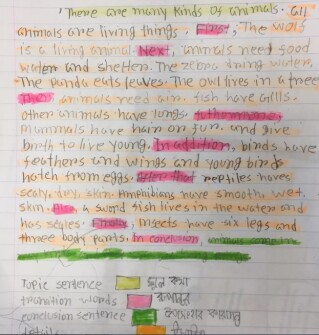 There are many kinds of animals. All
animals are living things. First, The wolf
is a living animal Next, animals need food
water and shelter. The zebra dring water.
The panda eats leaves. The owl lives in a tree
animals need air. fish have gills.
other animals have lungs.
mammals have hair on fur. and give
birth to live young. In addition, birds have
feathers and wings and young birds
hatch from eggs. After that reptiles haves
scaly, dry, skin. Amphibians have smooth, wet,
skin. a sword fish lives in the water and
has scales. insects have six legs and
three body parts. In conclusion,
Topic sentence
transition words
conclusion sentence
details